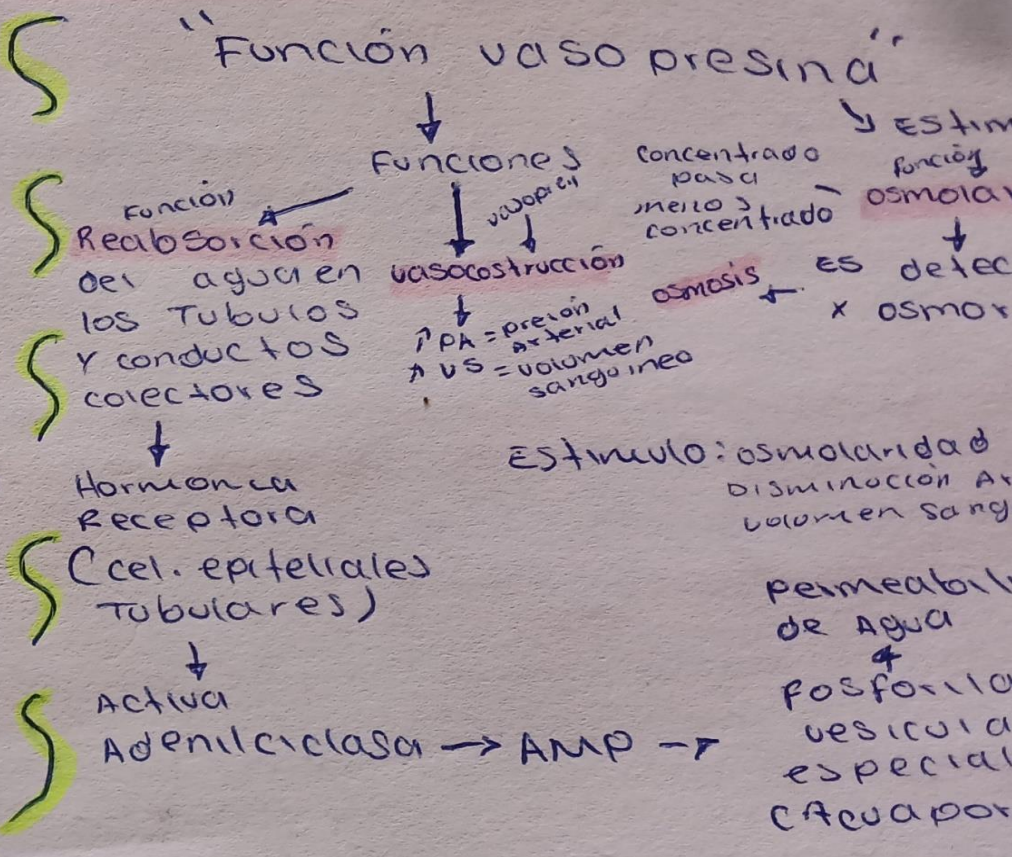 "Función vasopresina"
Funciones
Función
Reabsorción
del agua en
los Tubulos
Y conductos
colectores
Hormonca
Receptora
(cel. epiteliales
Tubulares)
Activa
Adenilciclasa → AMP →
vasopresi
vasocostrucción
↑ PA = preión
Arterial
↑ VS = volumen
sanguineo
Concentrado
pasa
menos
concentrado
Estim
función
osmola
ES detec
x osmor
osmosis
Estimulo: osmolaridad
Disminución Ar
volumen sang
permeabil
de Agua
Fosforila
vesicula
especial
(Acuapor